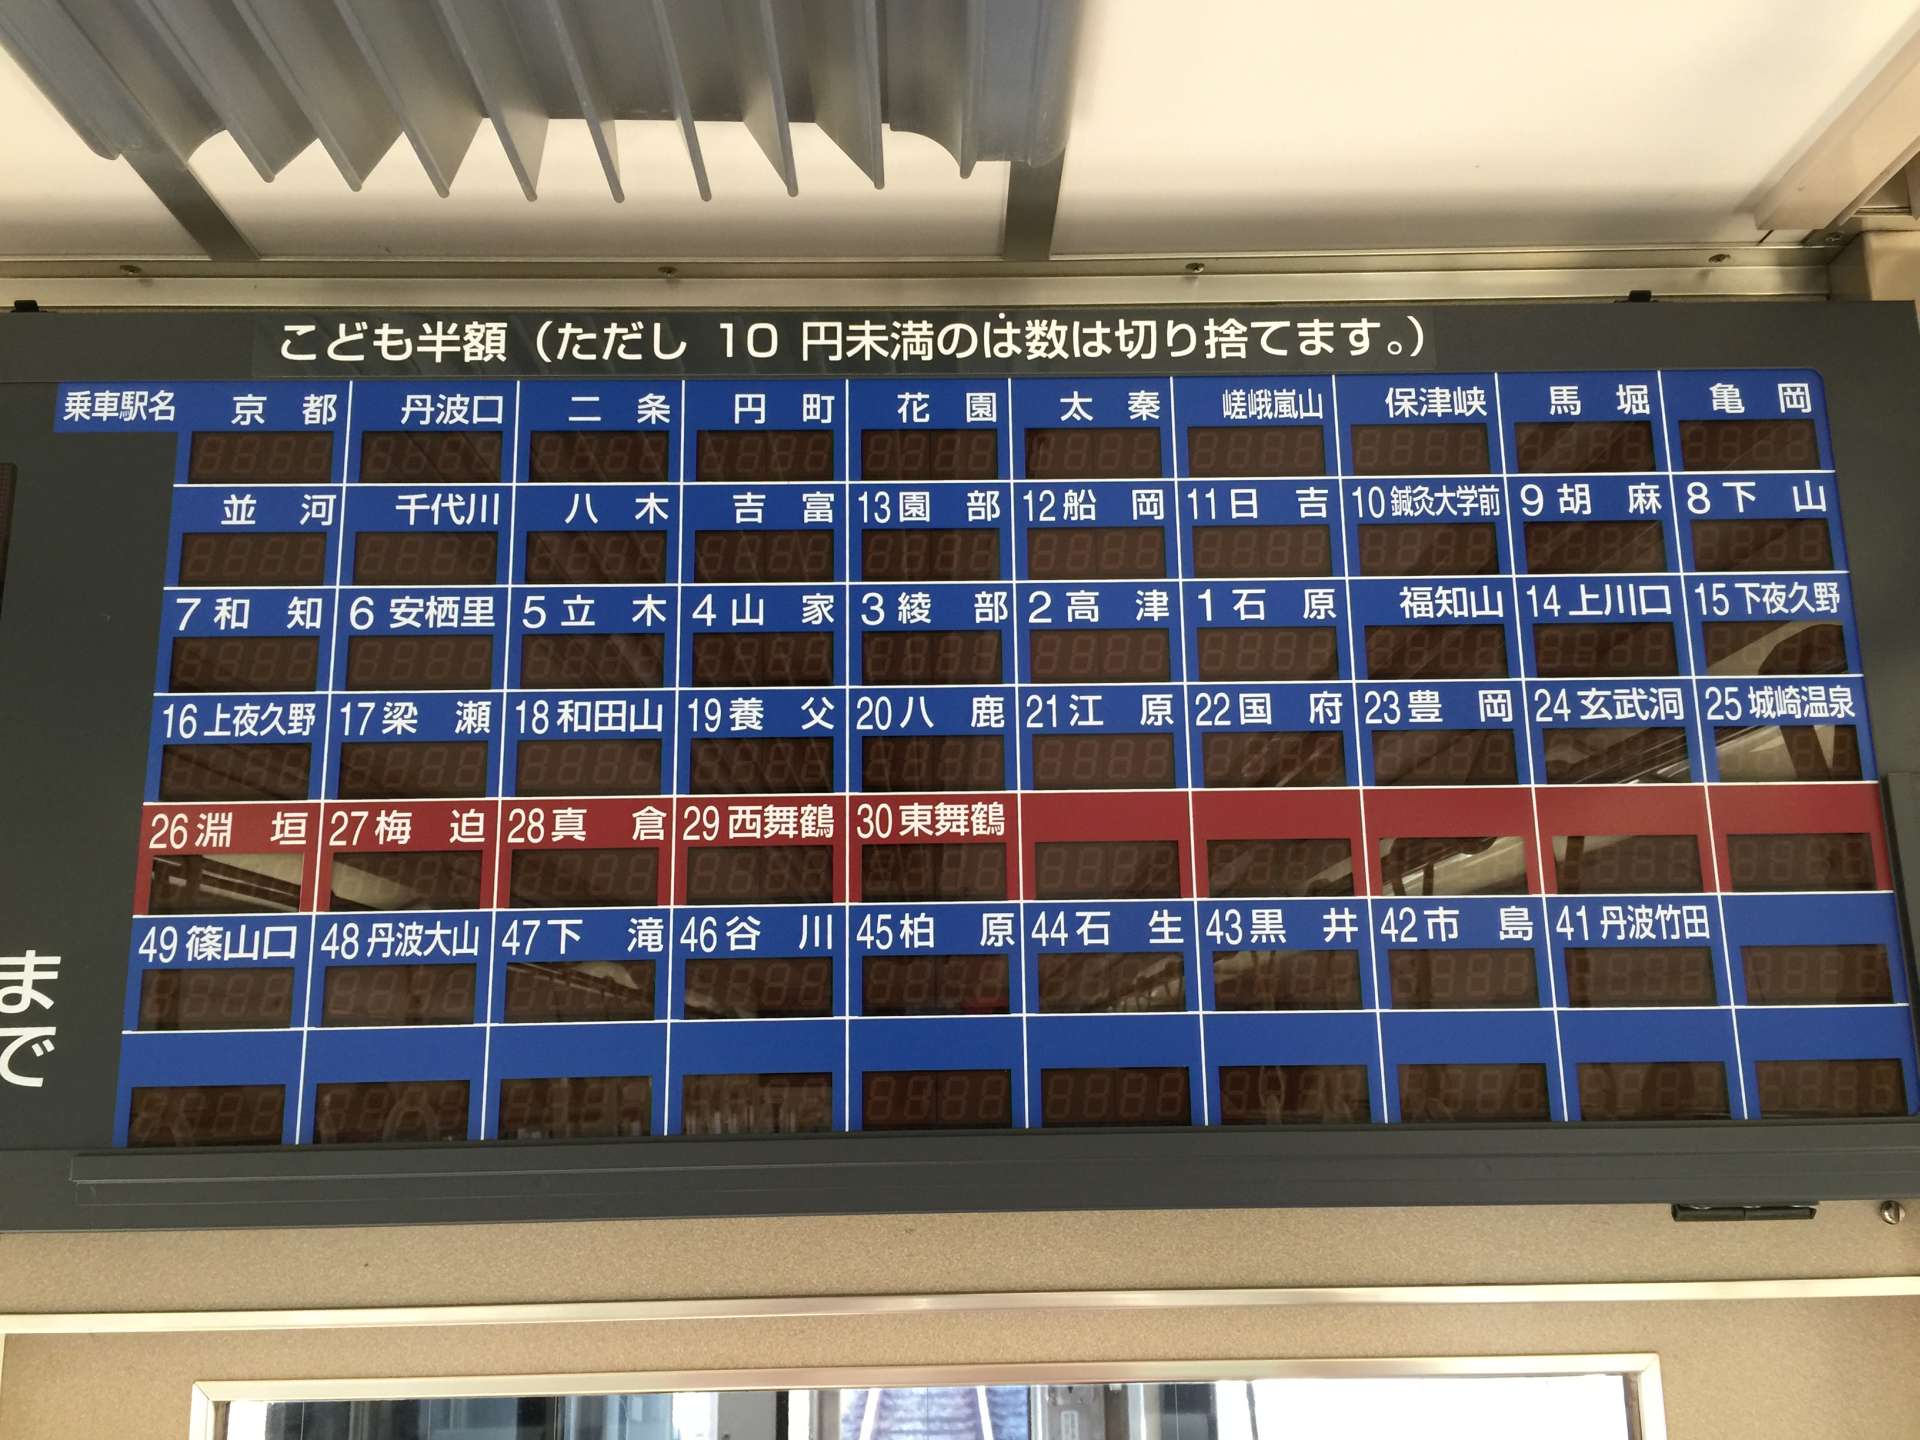 こども半額（ただし 10 円未満のは数は切り捨てます。）
乗車駅名 京都 丹波口 二条 円町 花園 太秦 嵯峨嵐山 保津峡 馬堀 亀岡
並河 千代川 八木 吉富 13園部 12船岡 11日吉 10鍼灸大学前 9胡麻 8下山
7和知 6安栖里 5立木 4山家 3綾部 2高津 1石原 福知山 14上川口 15下夜久野
16上夜久野 17梁瀬 18和田山 19養父 20八鹿 21江原 22国府 23豊岡 24玄武洞 25城崎温泉
26淵垣 27梅迫 28真倉 29西舞鶴 30東舞鶴
49篠山口 48丹波大山 47下滝 46谷川 45柏原 44石生 43黒井 42市島 41丹波竹田
まで